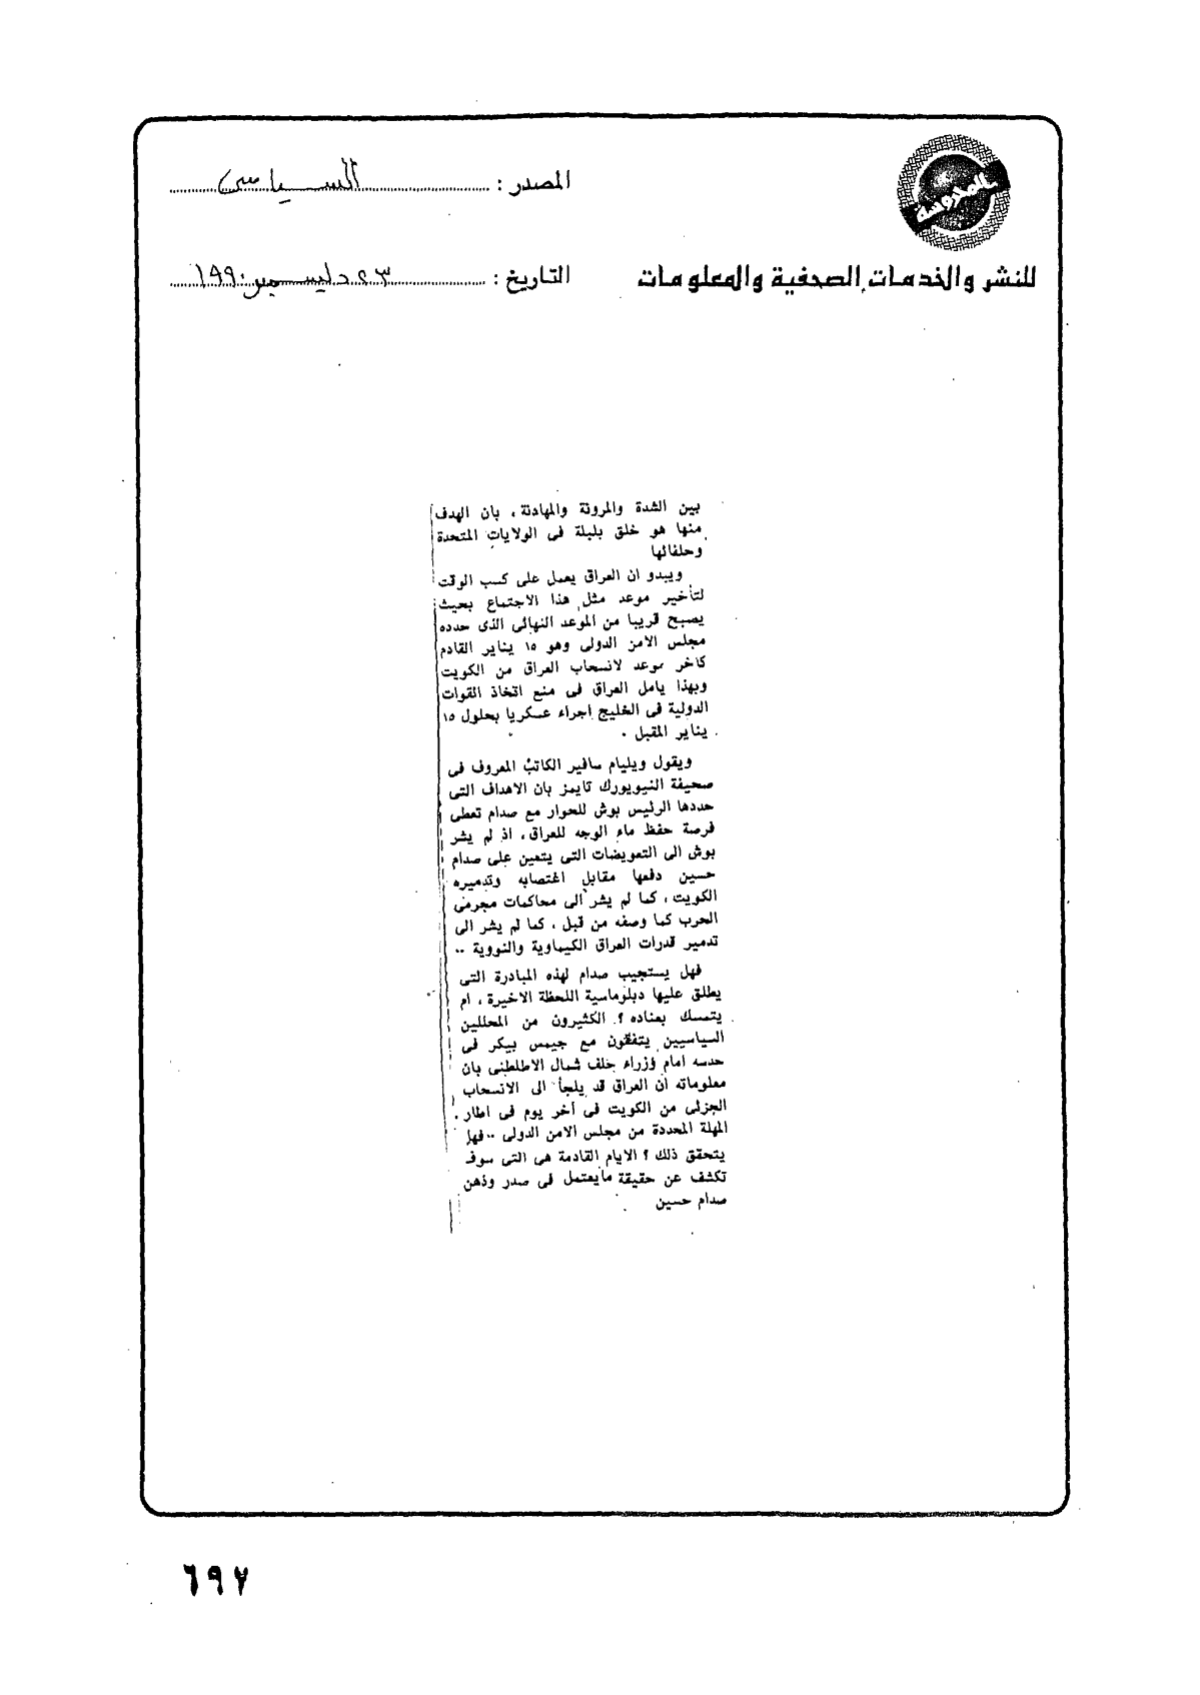 المحروسة
المصدر : السياسى
للنشر والخدمات الصحفية والمعلومات
التاريخ : ٢٣ ديسمبر ١٩٩٠
بين الشدة والمرونة والمهادنة ، بان الهدف
منها هو خلق بلبلة فى الولايات المتحدة
وحلفائها
ويبدو ان العراق يعمل على كسب الوقت
لتأخير موعد مثل هذا الاجتماع بحيث
يصبح قريبا من الموعد النهائى الذى حدده
مجلس الامن الدولى وهو ١٥ يناير القادم
كاخر موعد لانسحاب العراق من الكويت
وبهذا يامل العراق فى منع اتخاذ القوات
الدولية فى الخليج اجراء عسكريا بحلول ١٥
يناير المقبل .
ويقول ويليام سافير الكاتب المعروف فى
صحيفة النيويورك تايمز بان الاهداف التى
حددها الرئيس بوش للحوار مع صدام تعطى
فرصة حفظ ماء الوجه للعراق ، اذ لم يشر
بوش الى التعويضات التى يتعين على صدام
حسين دفعها مقابل اغتصابه وتدميره
الكويت ، كما لم يشر الى محاكمات مجرمى
الحرب كما وصفه من قبل ، كما لم يشر الى
تدمير قدرات العراق الكيماوية والنووية ..
فهل يستجيب صدام لهذه المبادرة التى
يطلق عليها دبلوماسية اللحظة الاخيرة ، ام
يتمسك بعناده ؟ الكثيرون من المحللين
السياسيين يتفقون مع جيمس بيكر فى
حدسه امام وزراء حلف شمال الاطلطنى بان
معلوماته أن العراق قد يلجأ الى الانسحاب
الجزئى من الكويت فى أخر يوم فى اطار
المهلة المحددة من مجلس الامن الدولى .. فهل
يتحقق ذلك ؟ الايام القادمة هى التى سوف
تكشف عن حقيقة مايعتمل فى صدر وذهن
صدام حسين
٦٩٧